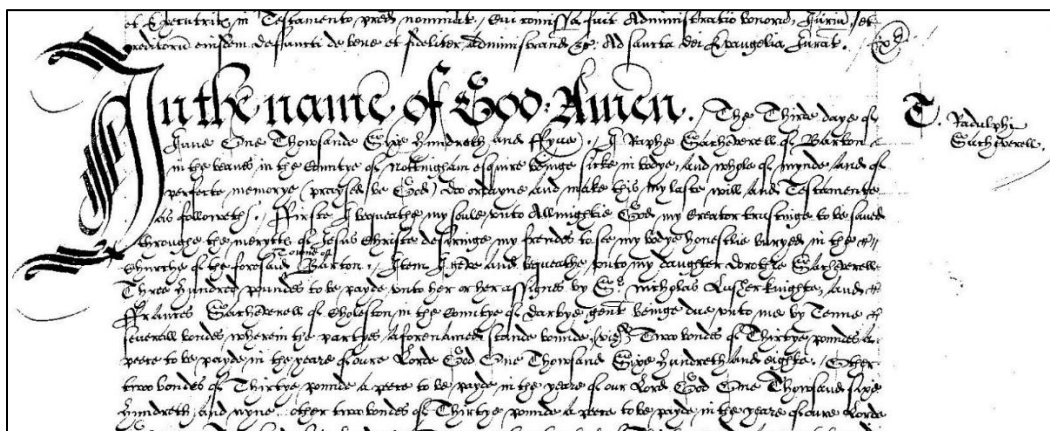 et Executrici in Testamento pred nominat. / Cui comissa fuit Administratio bonorum, Jurium, et
creditorum eiusdem deffuncti de bene et fideliter administrand &c. Ad sancta dei Evangelia Jurat.
In the name of God: Amen. / The Third daye of
June One Thowsande Sixe hundreth and ffyve. / I Raphe Sacheverell of Barton
in the beanes in the Countye of Nottingham esquire beinge sicke in bodye, and whole of mynde, and of
perfecte memorye (praysed be God) doo ordayne and make this my laste will and Testamente
as followeth. / ffirste I bequeathe my soule unto Allmightie God my Creator trustinge to be saved
through the merytts of Jesus Christe desiringe my frendes to see my bodye honestlie buryed in the
Churche of the foresaid Towne of Barton. / Item I geve and bequeathe unto my daughter dorothie Sacheverell
Three hundred poundes to be payde unto her or her assignes by Sr. Nicholas knighte, and
ffrances Sacheverell of in the Countye of darbye gent beinge due unto me by Tenne
severall bondes wherein the partyes aforenamed stande bounde, Two bondes of Thirtye poundes a
peece to be payde in the yeare of oure Lorde God One Thowsand Sixe hundreth and eighte, Other
two bondes of Thirtye pounde a peece to be payde in the yeare of our Lord God One Thowsand sixe
hundreth and nyne other two bondes of Thirtye pounde a peece to be payde in the yeare of oure Lorde
T. Radulphi
Sacheverell.